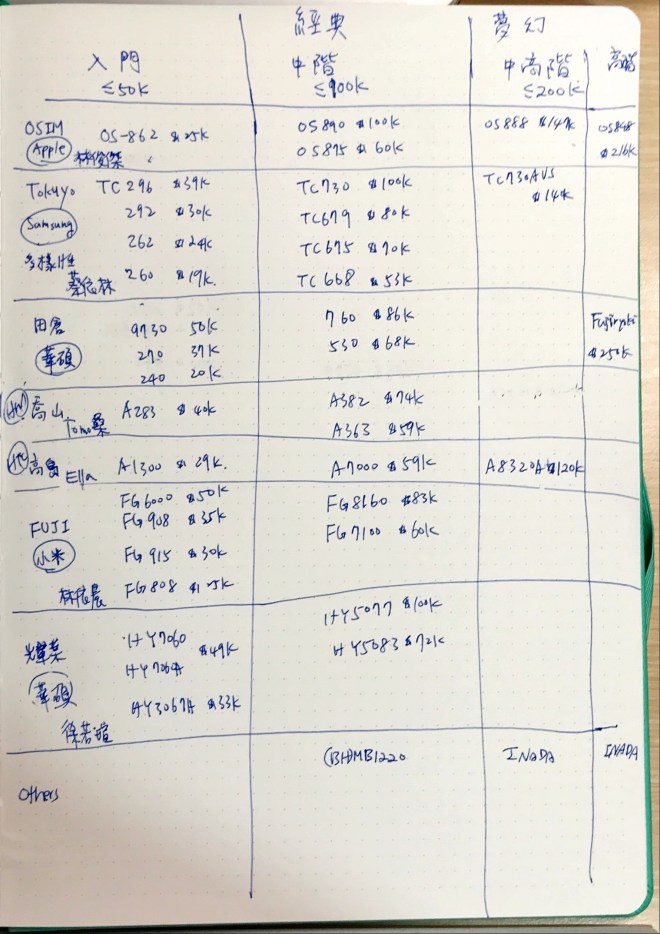 經典 夢幻
入門 中階 中高階 高階
≤50K ≤100K ≤200K
OSIM OS-862 $25K OS890 $100K OS888 $147K OS898
Apple 林俊傑 OS875 $60K $216K
Tokuyo TC296 $39K TC730 $100K TC730AVS
292 $30K TC679 $80K $14K
Samsung
262 $24K TC675 $70K
多樣性 260 $19K. TC668 $53K
蔡依林
田倉 9730 50K 760 $86K Fujiryoki
華碩 270 37K 530 $68K $250K
240 20K
喬山 A283 $40K A382 $74K
Tomo桑 A363 $59K
高島 Ella A1300 $29K. A7000 $59K A8320A $120K
FG6000 $50K FG8160 $83K
FUJI FG908 $35K FG7100 $60K
小米 FG915 $30K
林依晨 FG808
HY5077 $100K
HY7060
輝葉 $49K HY5083 $72K
HY7060A
華碩
HY3067A $33K
徐若瑄
(BH)MB1220 INADA INADA
Others